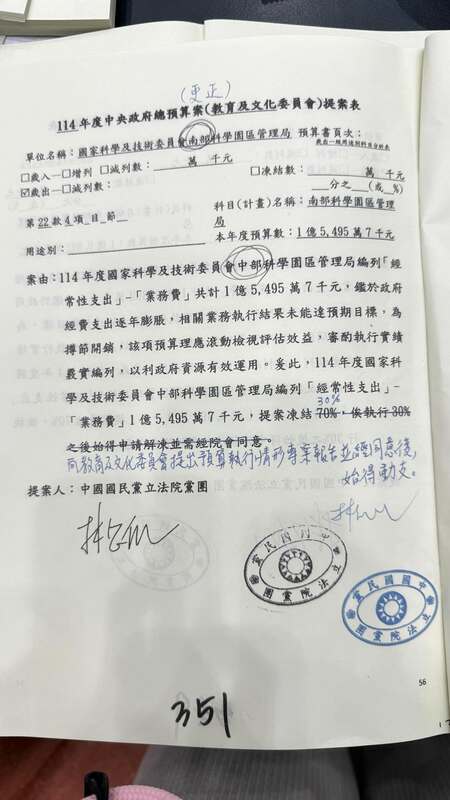 (更正)
114年度中央政府總預算案(教育及文化委員會)提案表
單位名稱:國家科學及技術委員會南部科學園區管理局 預算書頁次:
歲出一般用途別科目分析表
□歲入—□增列 □減列數: 萬 千元 □凍結數: 萬 千元
☑歲出—□減列數: 分之 (或 %)
第22款4項 目 節 科目(計畫)名稱:南部科學園區管理局
本年度預算數:1億5,495萬7千元
用途別:
案由:114年度國家科學及技術委員會中部科學園區管理局編列「經
常性支出」-「業務費」共計1億5,495萬7千元,鑑於政府
經費支出逐年膨脹,相關業務執行結果未能達預期目標,為
撙節開銷,該項預算理應滾動檢視評估效益,審酌執行實績
覈實編列,以利政府資源有效運用。爰此,114年度國家科
學及技術委員會中部科學園區管理局編列「經常性支出」-
30%
「業務費」1億5,495萬7千元,提案凍結70%,俟執行30%
之後始得申請解凍並需經院會同意。
向教育及文化委員會提出預算執行情形專案報告並經同意後,
始得動支。
提案人:中國國民黨立法院黨團
中國國民黨
立法院黨團
中國國民黨
立法院黨團
56
351